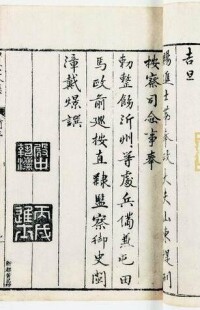 吉旦
賜進士第奉政大夫山東提刑
按察司僉事奉
勑整飭沂州等處兵備兼屯田
馬政前巡按直隸監察御史閩
漳戴燝譔
殿中
丙戌進士